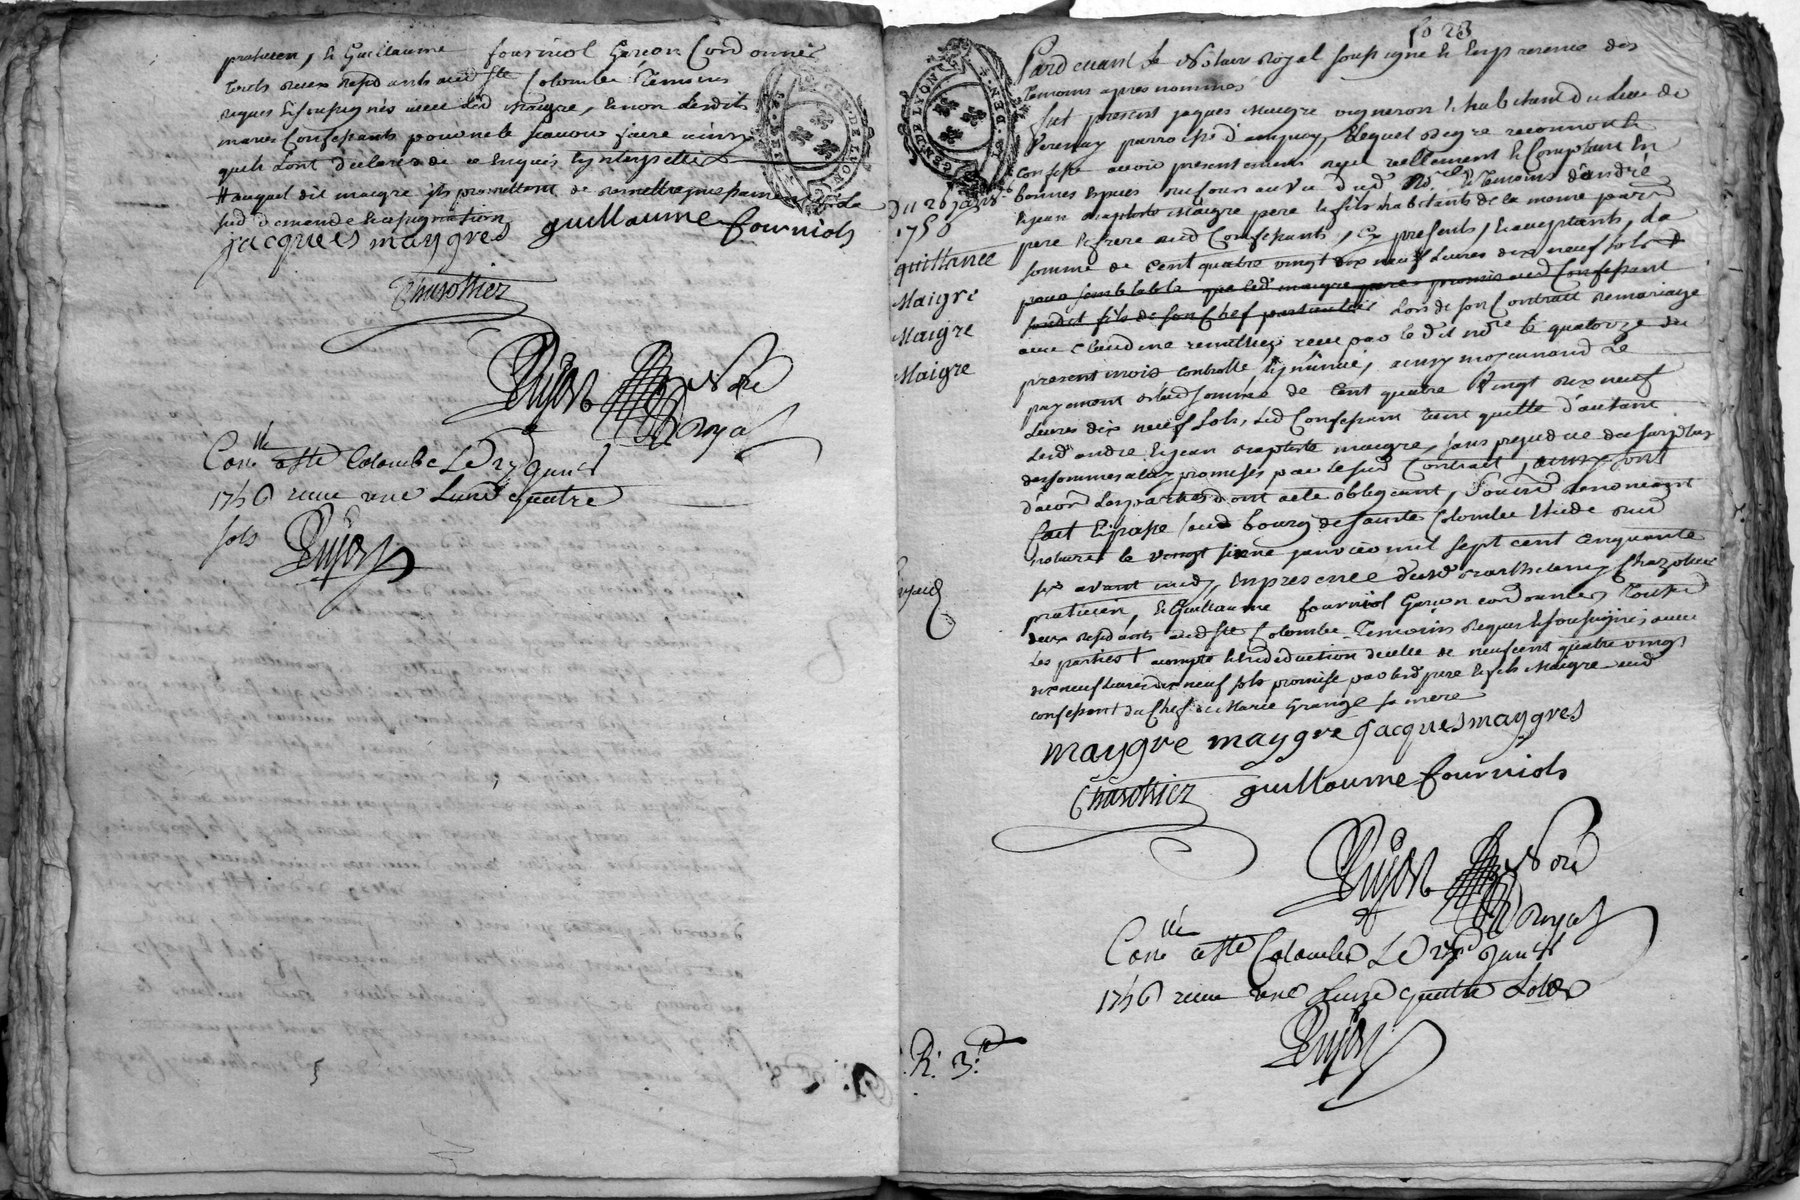 praticien, & Guillaume fourniol Garçon Cordonnier
touts deux residants aud Ste Colombe Temoins
requis & soussignés avec led maigre, & non lesdits
mariés Confessants pour ne le scavoir faire ainsy
quils l'ont declaré de ce Enquis & interpellés
# auquel dit maigre ils promettent de remettre
sud demande & assignation
jacques maygres guillaume fourniols
Chasottier
Dujast Nore
Royal
Conlle a Ste Colombe Le 27 janvr
1756 recu une Livre quatre
sols
Dujast
GEN. DE LYON
fo 23
GEN. DE LYON
Pardevant le Notaire Royal soussigné & En presence des
Temoins apres nommés
fut present jaques Maigre vigneron & habitant du lieu de
Verenay parroisse d'ampuy, Lequel de gré reconnoit &
confesse avoir presentement reçu reellement & Comptant En
bonnes Especes au vu dud Nore & Temoins d'andré
& jean Baptiste Maigre pere & fils habitants de la meme parr
pere & frere aud Confessant, cy presents, & acceptants, La
somme de Cent quatre vingt dix neuf Livres dix neuf sols
pour semblable que led maigre pere promis aud Confessant
sondit fils de son Chef particulier Lors de son Contrat de mariage
avec Claudine remillier recu par le dit nore le quatorze du
present mois controllé & insinué, ainsy moyennant Le
payement de lad somme de Cent quatre Vingt dix neuf
Livres dix neuf sols, Led Confessant tient quitte d'autant
Lesd andré & jean Baptiste maigre, sans prejudice du surplus
des sommes a luy promises par le sud Contrat, ainsy sont
d'accord Les parties dont acte obligeant, soumd renonceant
fait & passé aud bourg de sainte Colombe Etude dud
notaire le vingt sixne janvier mil sept cent cinquante
six avant midy, En presence dud sr Barthelemy Chazottier
praticien, & Guillaume fourniol Garçon cordonnier touts
deux residants aud Ste Colombe Temoins requis & soussignés avec
Les parties † acompte & En deduction de celle de neuf cent quatre vingt
dix neuf Livres dix neuf sols promise par lesd pere & fils Maigre aud
confessant du Chef de Marie Grange sa mere
maygre maygre jacques maygres
Chasottier guillaume fourniols
Dujast Nore
Royal
Conlle a Ste Colombe Le 27 janvr
1756 recu une Livre quatre Sols
Dujast
Du 26 janvr
1756
quittance
Maigre
Maigre
Maigre
R: 3.tt